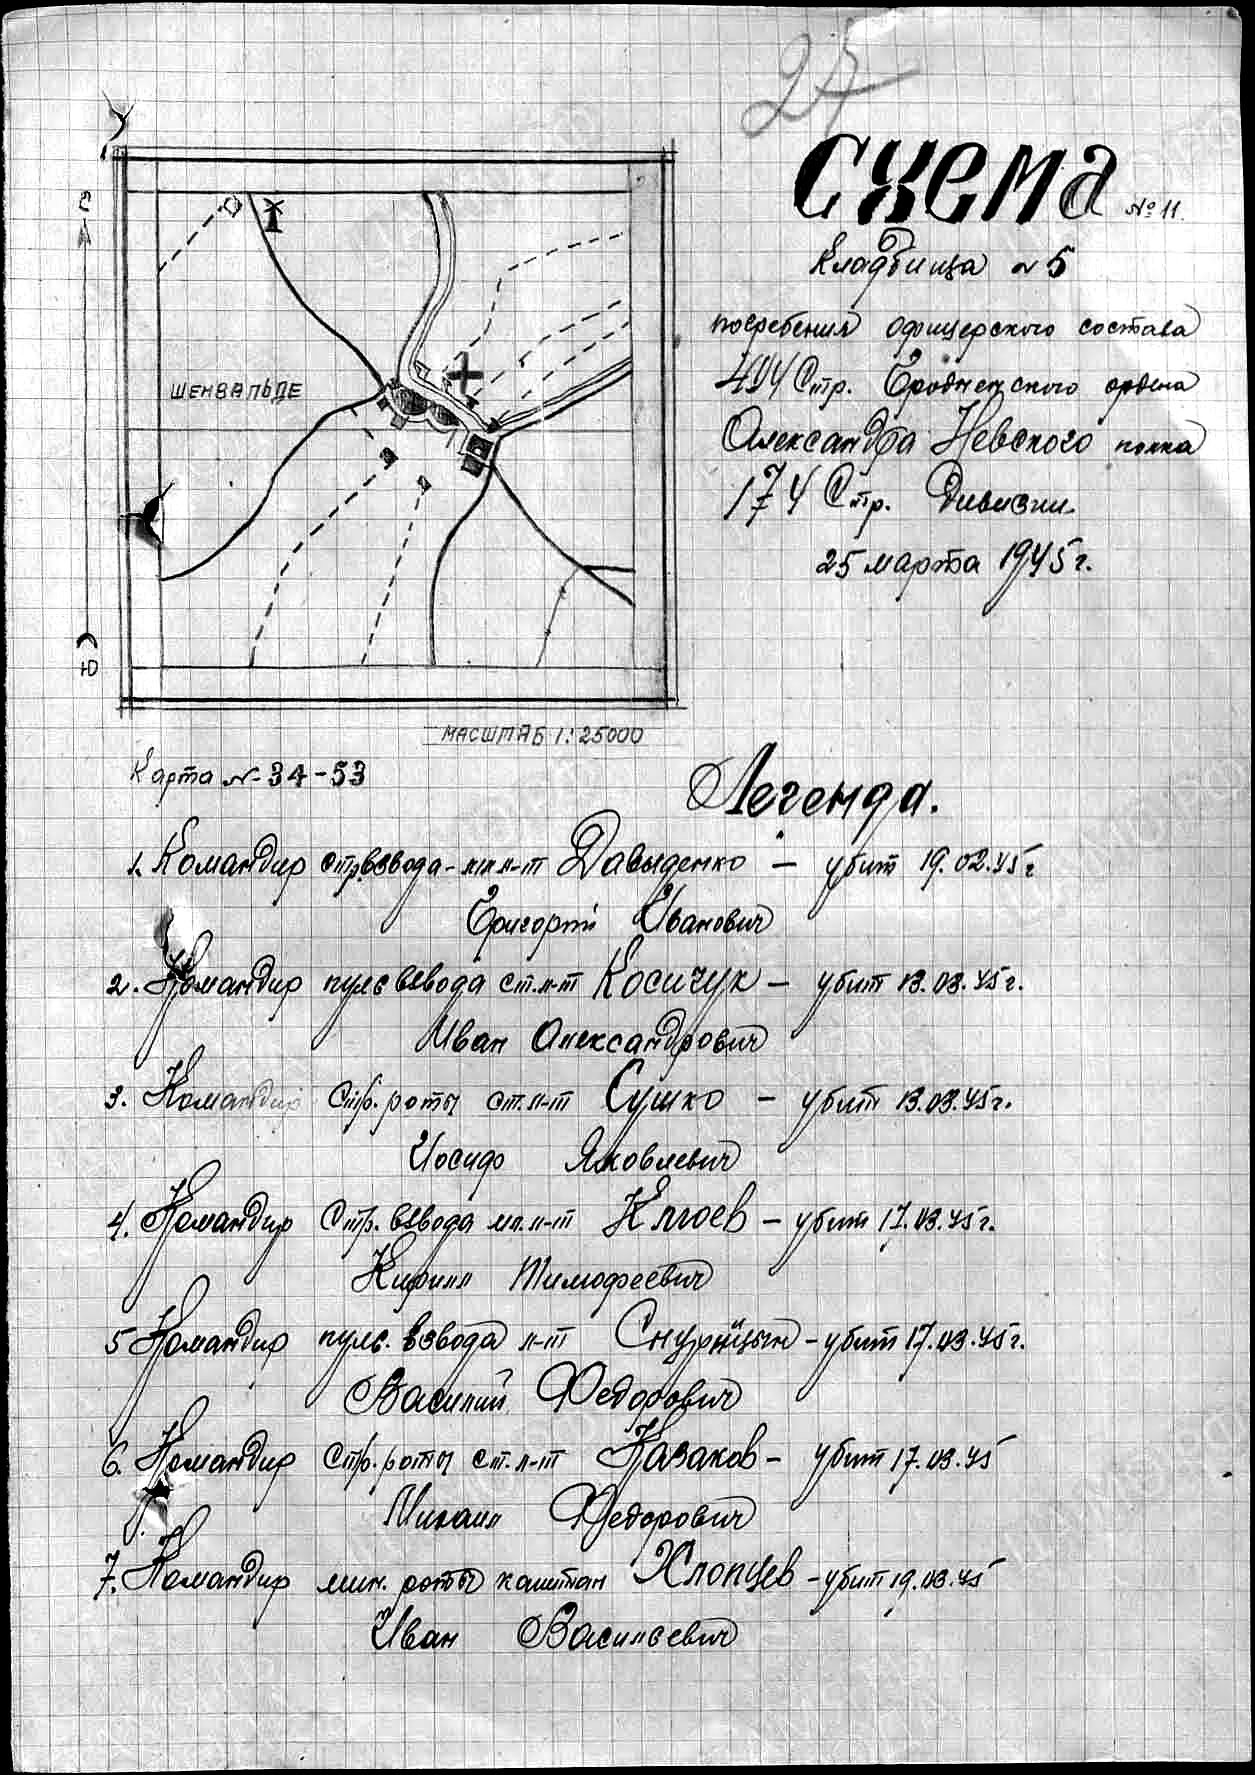 27
Схема № 11.
Кладбища № 5
погребения офицерского состава
494 Стр. Гродненского ордена
Александра Невского полка
174 Стр. Дивизии
25 марта 1945 г.
С
ШЕНВАЛЬДЕ
Ю
МАСШТАБ 1:25000
Карта N-34-53
Легенда.
1. Командир стр. взвода - мл. л-т Давыденко - убит 19.02.45 г
Григорий Иванович
2. Командир пульвзвода ст. л-т Косичук - убит 13.03.45 г.
Иван Александрович
3. Командир Стр. роты ст. л-т Сушко - убит 13.03.45 г.
Иосиф Яковлевич
4. Командир Стр. взвода мл. л-т Клюев - убит 17.03.45 г.
Кирилл Тимофеевич
5 Командир пульс. взвода л-т - убит 17.03.45 г.
Василий Федорович
6. Командир Стр. роты ст. л-т Казаков - убит 17.03.45
Михаил Федорович
7. Командир мин. роты капитан Хлопцев - убит 19.03.45
Иван Васильевич